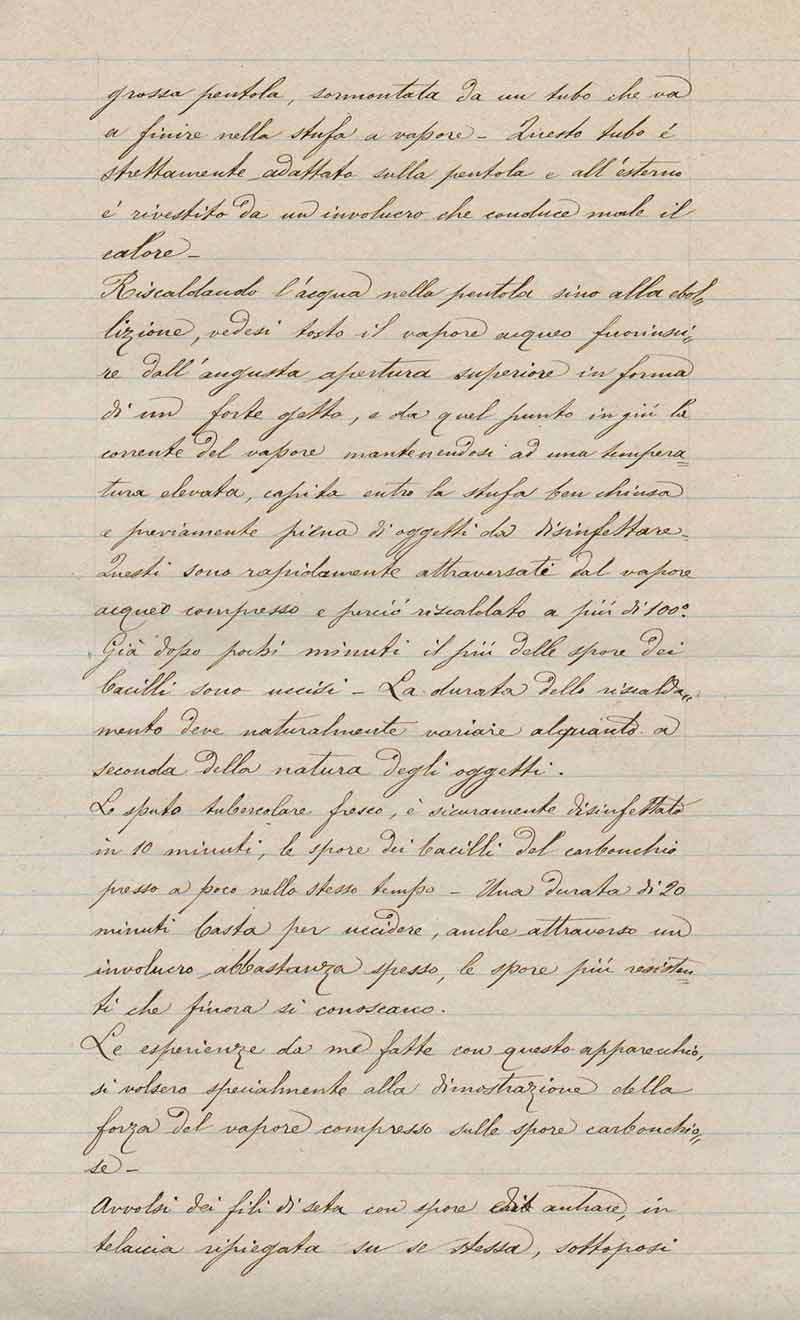 grossa pentola, sormontata da un tubo che va
a finire nella stufa a vapore - Questo tubo é
strettamente adattato sulla pentola e all'esterno
é rivestito da un involucro che conduce male il
calore -
Riscaldando l'acqua nella pentola sino alla ebol=
lizione, vedesi tosto il vapore acqueo fuoriusci=
re dall'angusta apertura superiore in forma
di un forte getto, e da quel punto in giú la
corrente del vapore mantenendosi ad una tempera=
tura elevata, capita entro la stufa ben chiusa
e previamente piena di oggetti da disinfettare -
Questi sono rapidamente attraversati dal vapore
acqueo compresso e perció riscaldato a piú di 100°.
Giá dopo pochi minuti il piú delle spore dei
bacilli sono uccisi - La durata dello riscalda=
mento deve naturalmente variare alquanto a
seconda della natura degli oggetti.
Lo sputo tubercolare fresco, é sicuramente disinfettato
in 10 minuti, le spore dei bacilli del carbonchio
presso a poco nello stesso tempo - Una durata di 20
minuti basta per uccidere, anche attraverso un
involucro abbastanza spesso, le spore piú resisten=
ti che finora si conoscano.
Le esperienze da me fatte con questo apparecchio,
si volsero specialmente alla dimostrazione della
forza del vapore compresso sulle spore carbonchio=
se -
Avvolsi dei fili di seta con spore antrace, in
telaccia ripiegata su se stessa, sottoposi